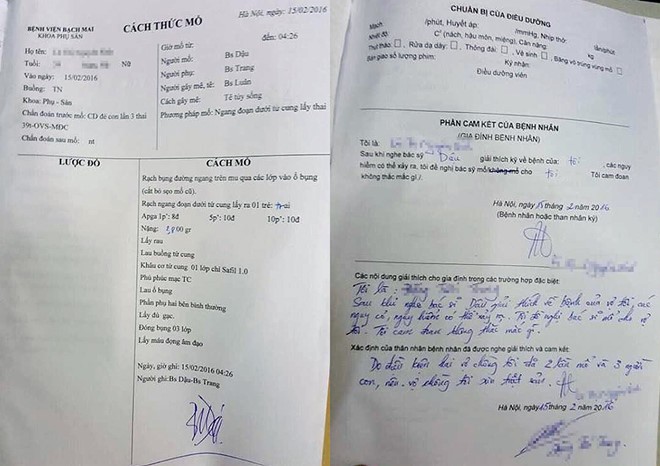 BỆNH VIỆN BẠCH MAI
KHOA PHỤ SẢN
CÁCH THỨC MỔ
Hà Nội, ngày: 15/02/2016
đến: 04:26
Họ tên:
Tuổi: Nữ
Vào ngày: 15/02/2016
Buồng: TN
Khoa: Phụ - Sản
Chẩn đoán trước mổ: CD đẻ con lần 3 thai
39t-OVS-MĐC
Chẩn đoán sau mổ: nt
Giờ mổ từ:
Người mổ: Bs Dậu
Người phụ: Bs Trang
Người gây mê, tê: Bs Luân
Cách gây mê: Tê tủy sống
Phương pháp mổ: Ngang đoạn dưới tử cung lấy thai
LƯỢC ĐỒ
CÁCH MỔ
Rạch bụng đường ngang trên mu qua các lớp vào ổ bụng
(cắt bỏ sẹo mổ cũ).
Rạch ngang đoạn dưới tử cung lấy ra 01 trẻ: trai
Apga 1p': 8đ 5p': 10đ 10p': 10đ
Nặng: 3,800 gr
Lấy rau
Lau buồng tử cung
Khâu cơ tử cung 01 lớp chỉ Safil 1.0
Phủ phúc mạc TC
Lau ổ bụng
Phần phụ hai bên bình thường
Lấy đủ gạc.
Đóng bụng 03 lớp
Lấy máu đọng âm đạo
Ngày, giờ ghi: 15/02/2016 04:26
Người ghi:Bs Dậu-Bs Trang
CHUẨN BỊ CỦA ĐIỀU DƯỠNG
Mạch /phút, Huyết áp: /mmHg, Nhịp thở: lần/phút
Nhiệt độ: C° (nách, hậu môn, miệng), Cân nặng: kg
Thụt tháo: , Rửa dạ dày: , Thông đái: , Vệ sinh , Băng vô trùng vùng mổ
Bàn giao số lượng phim: Ký nhận:
Điều dưỡng viên
PHẦN CAM KẾT CỦA BỆNH NHÂN
(GIA ĐÌNH BỆNH NHÂN)
Tôi là:
Sau khi nghe bác sỹ Dậu giải thích kỹ về bệnh của: tôi , các nguy
hiểm có thể xảy ra, tôi đề nghị bác sỹ mổ/không mổ cho tôi Tôi cam đoan
không thắc mắc gì./.
Hà Nội, ngày 15 tháng 2 năm 2016
(Bệnh nhân hoặc thân nhân ký)
Các nội dung giải thích cho gia đình trong các trường hợp đặc biệt:
Tôi là:
Sau khi nghe bác sĩ Dậu giải thích về bệnh của vợ tôi, các
nguy cơ, nguy hiểm có thể xảy ra. Tôi đề nghị bác sĩ mổ cho vợ
tôi. Tôi cam đoan không thắc mắc gì.
Xác định của thân nhân bệnh nhân đã được nghe giải thích và cam kết:
Do điều kiện hai vợ chồng tôi đã 2 lần mổ và 3 người
con, nên vợ chồng tôi xin triệt sản.
Hà Nội, ngày 15 tháng 2 năm 2016